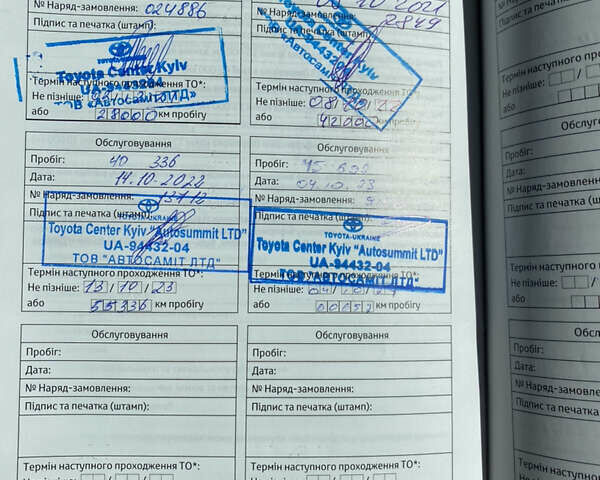 № Наряд-замовлення: 024886
Підпис та печатка (штамп):
TOYOTA-UKRAINE
Toyota Center Kyiv
UA-94432-04
ТОВ "АВТОСАМІТ ЛТД"
Термін наступного проходження ТО*:
Не пізніше:
або 28000 км пробігу
10 2021
Підпис та печатка
Kyiv
UA-94432
Термін наступного проходження ТО*:
Не пізніше: 08
або 42000 км пробігу
Обслуговування
Пробіг: 40 336
Дата: 14.10.2022
№ Наряд-замовлення: 13712
Підпис та печатка (штамп):
TOYOTA-UKRAINE
Toyota Center Kyiv "Autosummit LTD"
UA-94432-04
ТОВ "АВТОСАМІТ ЛТД"
Термін наступного проходження ТО*:
Не пізніше: 13 / 10 / 23
або 55336 км пробігу
Обслуговування
Пробіг:
Дата: 04.10.23
№ Наряд-замовлення:
Підпис та печатка (штамп):
TOYOTA-UKRAINE
Toyota Center Kyiv "Autosummit LTD"
UA-94432-04
ТОВ "АВТОСАМІТ ЛТД"
Термін наступного проходження ТО*:
Не пізніше:
або км пробігу
Обслуговування
Пробіг:
Дата:
№ Наряд-замовлення:
Підпис та печатка (штамп):
Термін наступного проходження ТО*:
Не пізніше:
Обслуговування
Пробіг:
Дата:
№ Наряд-замовлення:
Підпис та печатка (штамп):
Термін наступного проходження ТО*:
Не пізніше:
Термін наступного
Не пізніше:
або
Обслу
Пробіг:
Дата:
№ Наряд-замовле
Підпис та печатка
Термін наступного
Не пізніше:
або
Обсл
Пробіг:
Дата:
№ Наряд-замовле
Підпис та печатка
Термін наступног
Не пізніше: